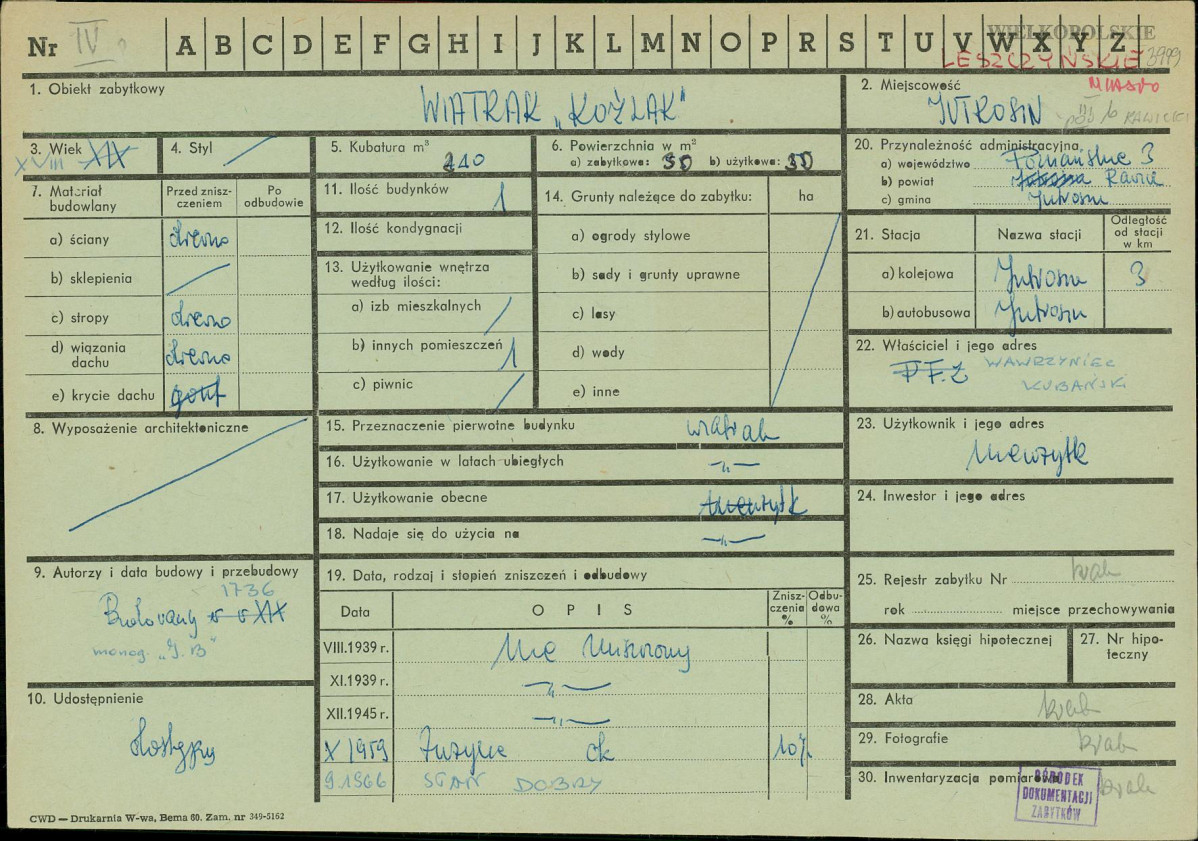 Nr IV A B C D E F G H I J K L M N O P R S T U V W X Y Z
WIELKOPOLSKIE
LESZCZYŃSKIE 3999
1. Obiekt zabytkowy
WIATRAK „KOŹLAK"
2. Miejscowość MIASTO
JUTROSIN
3. Wiek XIX
XVIII
4. Styl
5. Kubatura m³
210
6. Powierzchnia w m²
a) zabytkowa: 30 b) użytkowa: 30
7. Materiał budowlany
Przed zniszczeniem
Po odbudowie
a) ściany drewno
b) sklepienia
c) stropy drewno
d) wiązania dachu drewno
e) krycie dachu gont
8. Wyposażenie architektoniczne
9. Autorzy i data budowy i przebudowy
1736
Budowany w XIX
monog. „J.B"
10. Udostępnienie
Dostępny
11. Ilość budynków 1
12. Ilość kondygnacji
13. Użytkowanie wnętrza
według ilości:
a) izb mieszkalnych
b) innych pomieszczeń 1
c) piwnic
14. Grunty należące do zabytku: ha
a) ogrody stylowe
b) sady i grunty uprawne
c) lasy
d) wody
e) inne
15. Przeznaczenie pierwotne budynku wiatrak
16. Użytkowanie w latach ubiegłych -„-
17. Użytkowanie obecne nieużytk
18. Nadaje się do użycia na -„-
19. Data, rodzaj i stopień zniszczeń i odbudowy
Data O P I S Zniszczenia % Odbudowa %
VIII.1939 r. Nie zniszczony
XI.1939 r. -„-
XII.1945 r. -„-
X 1959 Zużycie ok 10%
9.1966 STAN DOBRY
20. Przynależność administracyjna
a) województwo Poznańskie 3
b) powiat Rawicz
c) gmina Jutrosin
21. Stacja
Nazwa stacji
Odległość od stacji w km
a) kolejowa Jutrosin 3
b) autobusowa Jutrosin
22. Właściciel i jego adres
PFZ WAWRZYNIEC
KUBAŃSKI
23. Użytkownik i jego adres
Nieużytk
24. Inwestor i jego adres
25. Rejestr zabytku Nr brak
rok miejsce przechowywania
26. Nazwa księgi hipotecznej
27. Nr hipoteczny
28. Akta brak
29. Fotografie brak
30. Inwentaryzacja pomiarowa brak
OŚRODEK
DOKUMENTACJI
ZABYTKÓW
CWD — Drukarnia W-wa, Bema 60. Zam. nr 349-5162